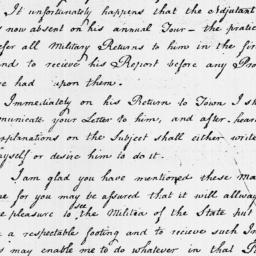 It unfortunately happens that the Adjutant
s now absent on his annual Tour – the pratic
efer all Military Returns to him in the fir
nd to recieve his Report before any Pro
e had upon them.
Immediately on his Return to Town I sh
municate your Letter to him, and after hear
xplanations on the Subject shall either write
yself or desire him to do it.
I am glad you have mentioned these ma
e for you may be assured that it will allway
e pleasure to see the Militia of the State put
a respectable footing and to recieve such In
s may enable me to do whatever in that R